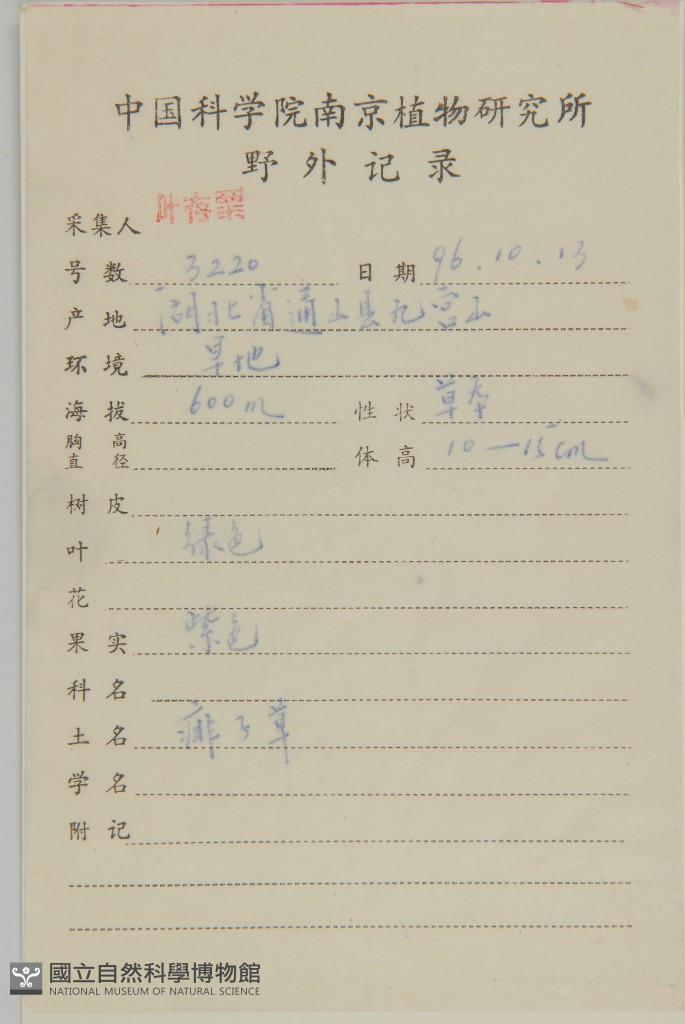 中国科学院南京植物研究所
野外记录
采集人 叶存粟
号数 3220 日期 96.10.13
产地 湖北省通山县九宫山
环境 草地
海拔 600m 性状 草本
胸高直径 体高 10—15cm
树皮
叶 绿色
花
果实 紫色
科名
土名 痱子草
学名
附记
國立自然科學博物館
NATIONAL MUSEUM OF NATURAL SCIENCE